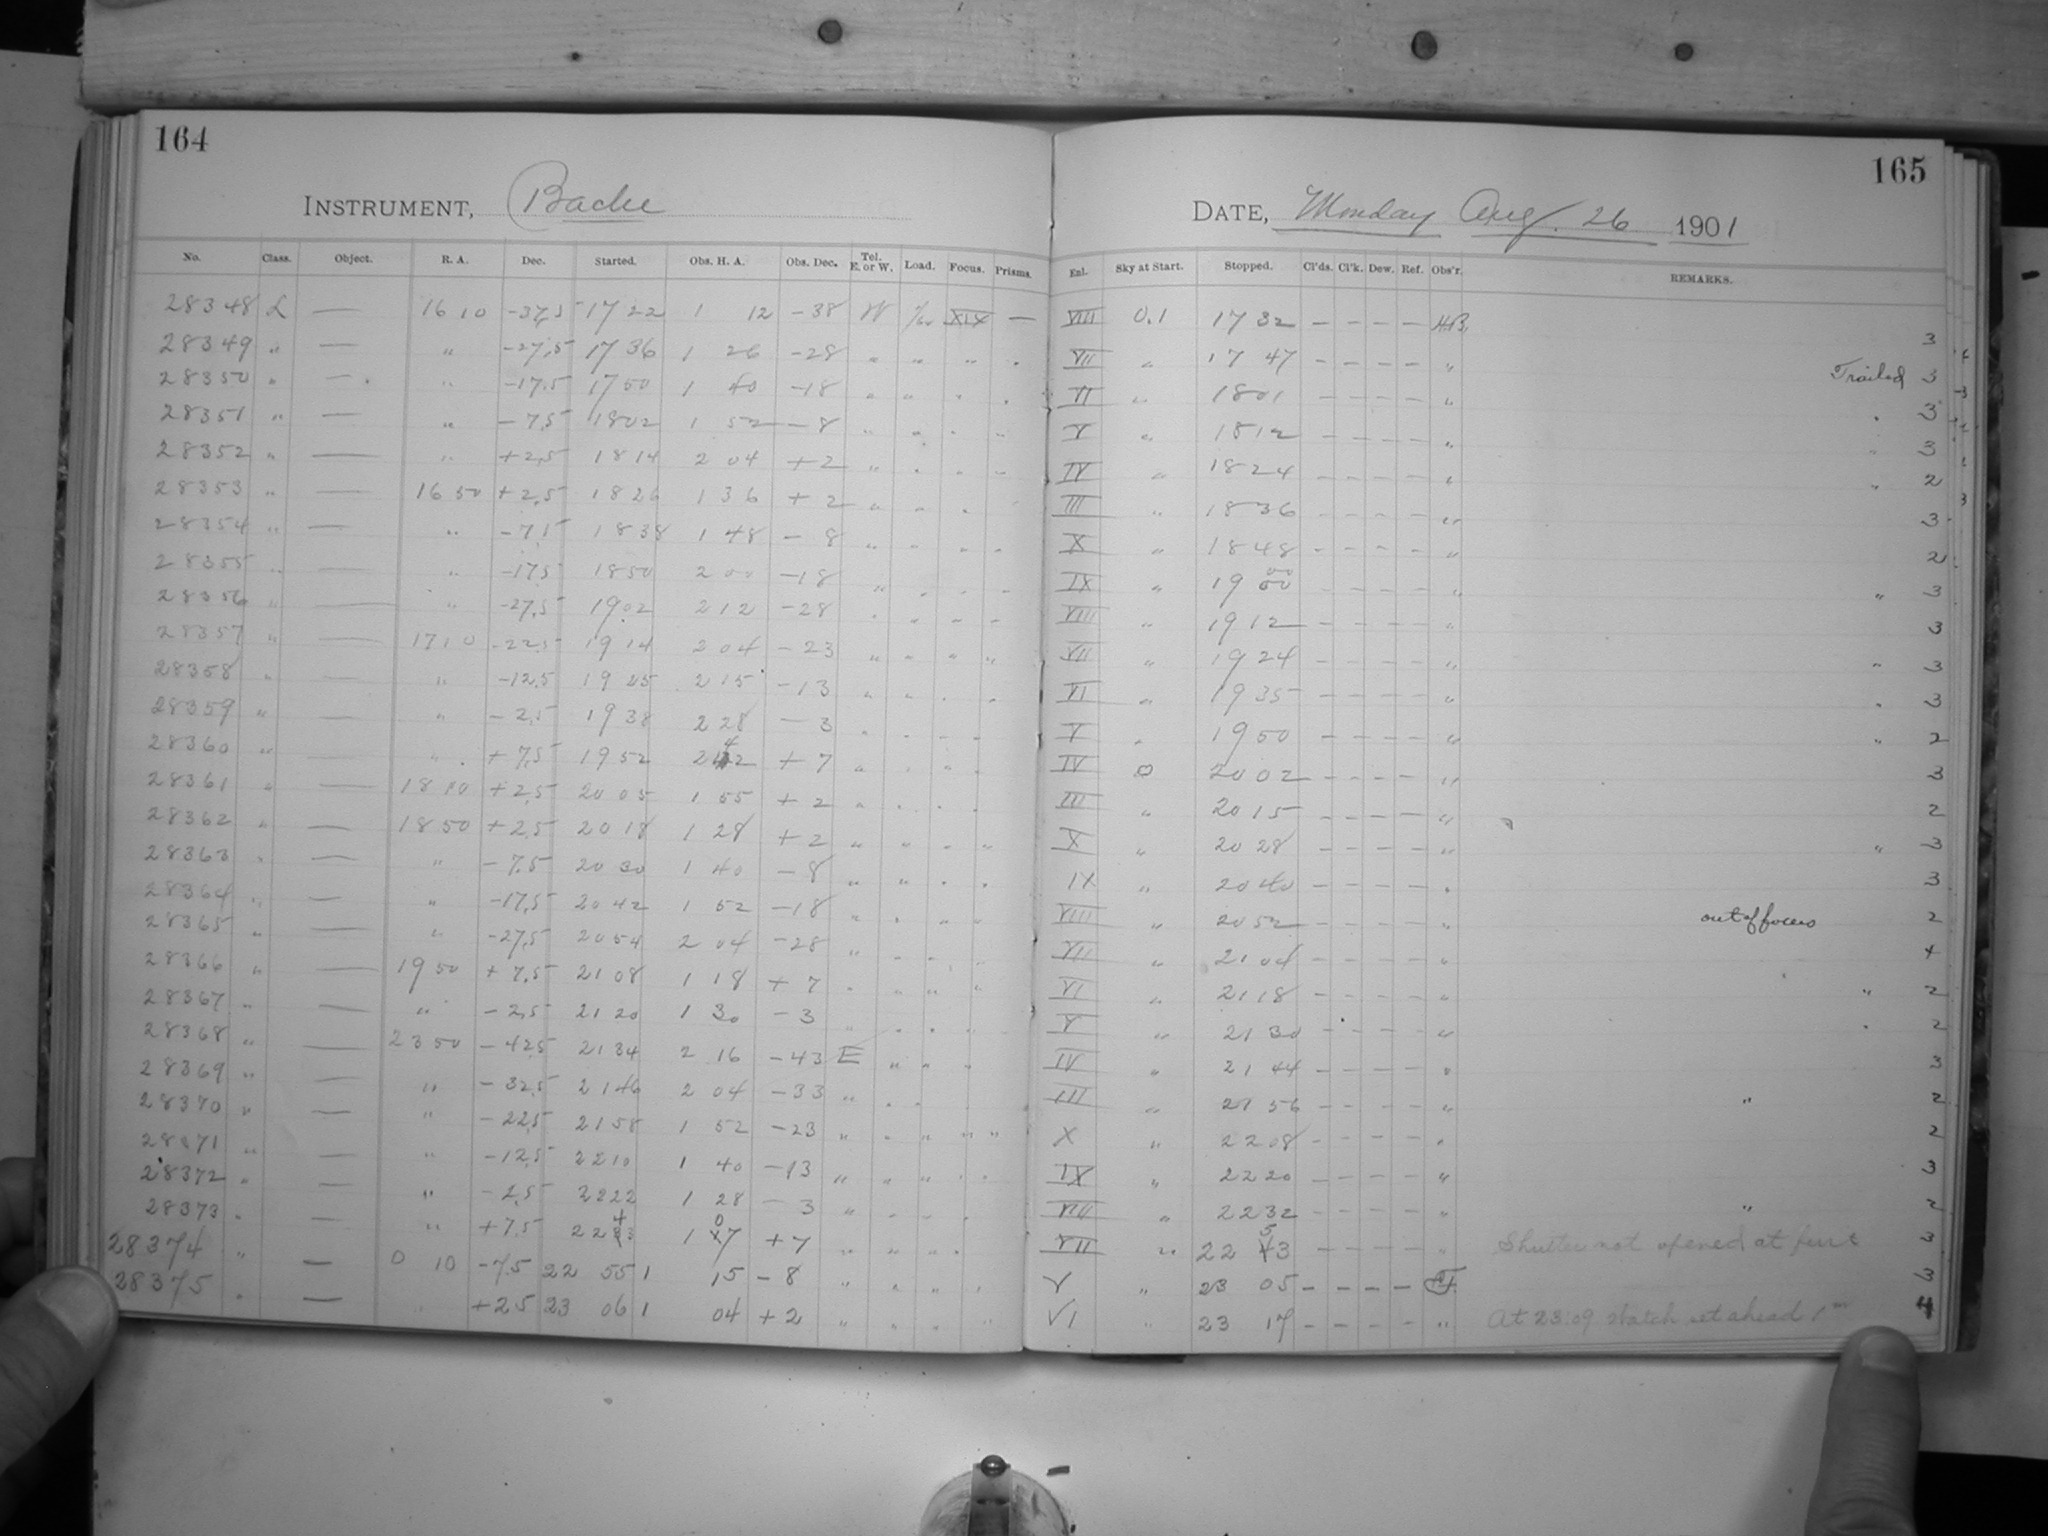 164
INSTRUMENT, Bache
No. Class. Object. R. A. Dec. Started. Obs. H. A. Obs. Dec. Tel. E. or W. Load. Focus. Prisms.
28348 L — 16 10 -37.5 17 22 1 12 -38 W XIX —
28349 " — " -27.5 17 36 1 26 -28 " " " "
28350 " — " -17.5 17 50 1 40 -18 " " " "
28351 " — " -7.5 18 02 1 52 -8 " " " "
28352 " — " +2.5 18 14 2 04 +2 " " " "
28353 " — 16 50 +2.5 18 26 1 36 +2 " " " "
28354 " — " -7.5 18 38 1 48 -8 " " " "
28355 " — " -17.5 18 50 2 00 -18 " " " "
28356 " — " -27.5 19 02 2 12 -28 " " " "
28357 " — 17 10 -22.5 19 14 2 04 -23 " " " "
28358 " — " -12.5 19 25 2 15 -13 " " " "
28359 " — " -2.5 19 38 2 28 -3 " " " "
28360 " — " +7.5 19 52 2 42 +7 " " " "
28361 " — 18 10 +2.5 20 05 1 55 +2 " " " "
28362 " — 18 50 +2.5 20 18 1 28 +2 " " " "
28363 " — " -7.5 20 30 1 40 -8 " " " "
28364 " — " -17.5 20 42 1 52 -18 " " " "
28365 " — " -27.5 20 54 2 04 -28 " " " "
28366 " — 19 50 +7.5 21 08 1 18 +7 " " " "
28367 " — " -2.5 21 20 1 30 -3 " " " "
28368 " — 23 50 -42.5 21 34 2 16 -43 E " " "
28369 " — " -32.5 21 46 2 04 -33 " " "
28370 " — " -22.5 21 58 1 52 -23 " " " "
28371 " — " -12.5 22 10 1 40 -13 " " " "
28372 " — " -2.5 22 22 1 28 -3 " " " "
28373 " — " +7.5 22 43 1 07 +7 " " " "
28374 " — 0 10 -7.5 22 55 1 15 -8 " " " "
28375 " — " +2.5 23 06 1 04 +2 " " " "
165
DATE, Monday Aug. 26 1901
Enl. Sky at Start. Stopped. Cl'ds. Cl'k. Dew. Ref. Obs'r. REMARKS.
VIII 0.1 17 32 — — — — H.B. 3
VII " 17 47 — — — — " Trailed 3
VI " 18 01 — — — — " " 3
V " 18 12 — — — — " " 3
IV " 18 24 — — — — " " 2
III " 18 36 — — — — " 3
X " 18 48 — — — — " 2
IX " 19 00 — — — — " " 3
VIII " 19 12 — — — — " 3
VII " 19 24 — — — — " " 3
VI " 19 35 — — — — " " 3
V " 19 50 — — — — " " 2
IV 0 20 02 — — — — " 3
III " 20 15 — — — — " 2
X " 20 28 — — — — " " 3
IX " 20 40 — — — — " 3
VIII " 20 52 — — — — " out of focus 2
VII " 21 04 — — — — " 4
VI " 21 18 — — — — " " 2
V " 21 30 — — — — " " 2
IV " 21 44 — — — — " 3
III " 21 56 — — — — " " 2
X " 22 08 — — — — " 2
IX " 22 20 — — — — " 3
VIII " 22 32 — — — — " " 2
VII " 22 53 — — — — " Shutter not opened at first 3
V " 23 05 — — — — 3
VI " 23 17 — — — — " At 23:09 Watch set ahead 1m 4